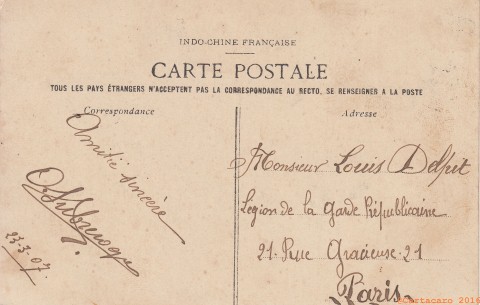 INDO-CHINE FRANÇAISE
CARTE POSTALE
TOUS LES PAYS ÉTRANGERS N'ACCEPTENT PAS LA CORRESPONDANCE AU RECTO, SE RENSEIGNER A LA POSTE
Correspondance
Amitié sincère
23.3.07
Adresse
Monsieur Louis Delpit
Legion de la Garde Républicaine
21. Rue Gracieuse. 21
Paris.
©Cartacaro 2016